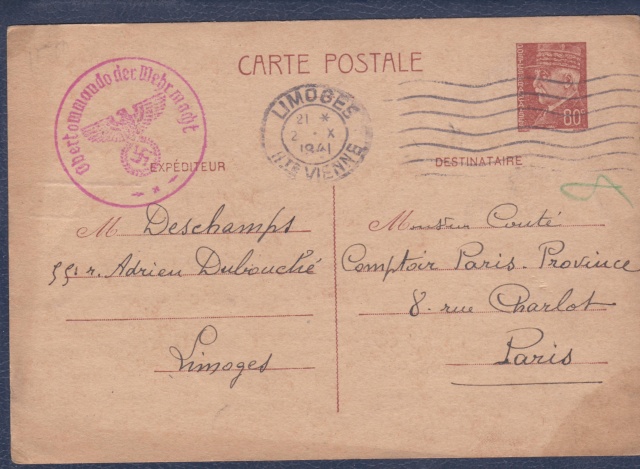 CARTE POSTALE
Oberkommando der Wehrmacht
LIMOGES
21 *
2 · X
1941
HTE VIENNE
60c
EXPÉDITEUR
DESTINATAIRE
M Deschamps
r. Adrien Dubouché
Limoges
Monsieur Couté
Comptoir Paris-Province
8 rue Charlot
Paris